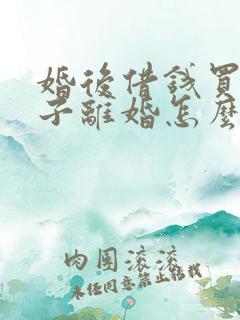 婚後借錢買
子離婚怎麼
肉團滾滾
未經同意禁止轉載